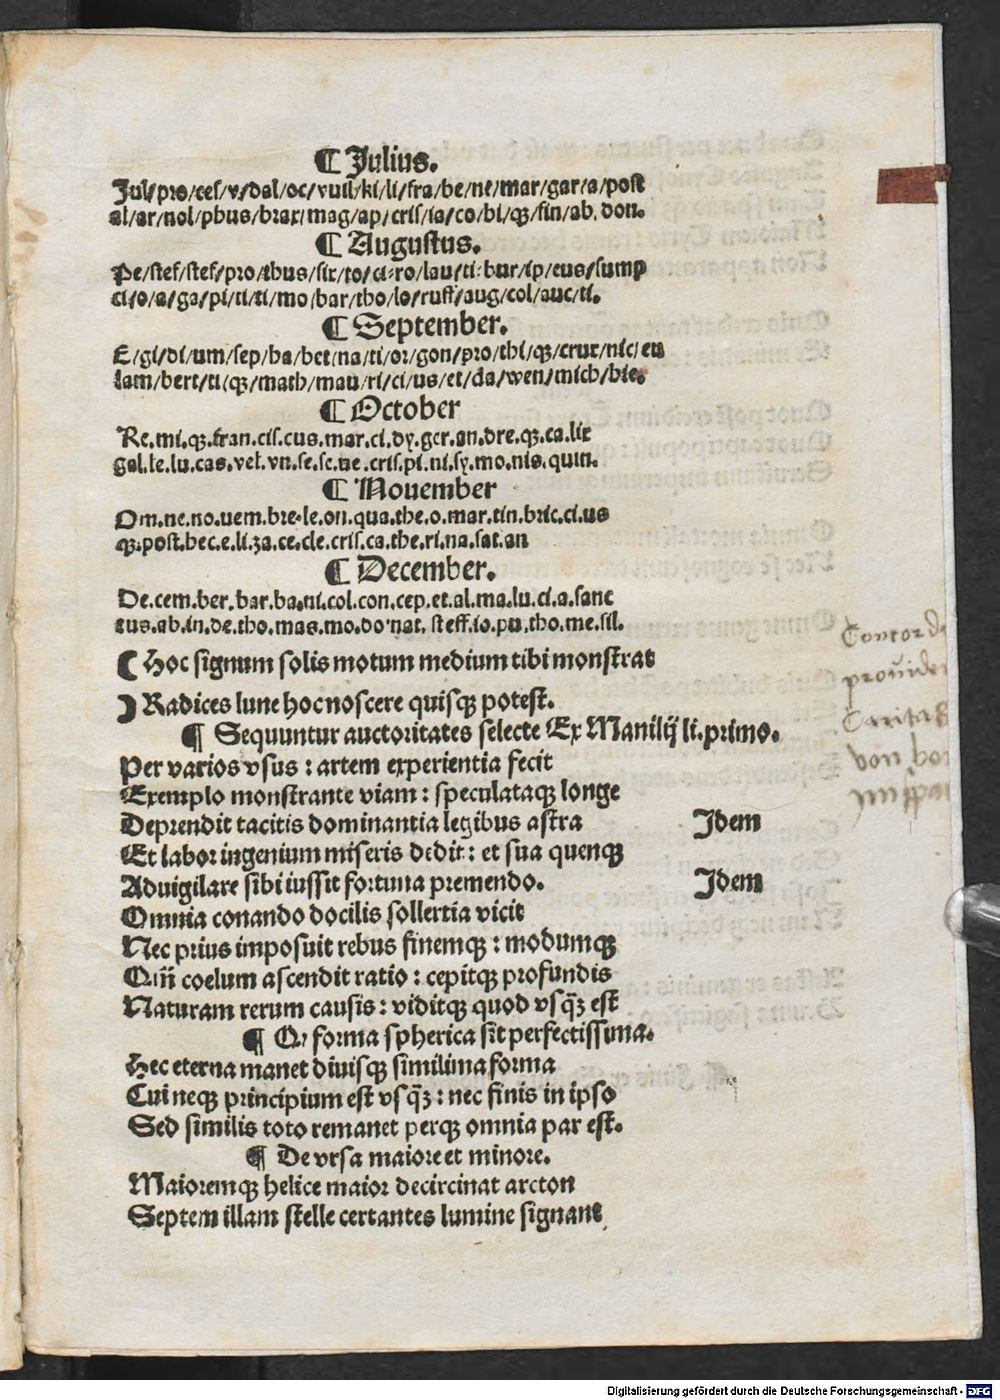 ¶ Julius.
Jul/pro/cef/v/dal/oc/vuil/ki/li/fra/be/ne/mar/gar/a/post
al/ar/nol/phus/brax/mag/ap/cris/ia/co/bi/qꝫ/sin/ab. don.
¶ Augustus.
Pe/stef/stef/pro/thus/six/to/ci/ro/lau/ti/bur/ip/eus/sump
ci/o/a/ga/pi/ti/ti/mo/bar/tho/lo/ruff/aug/col/auc/ti.
¶ September.
E/gi/di/um/sep/ha/bet/na/ti/or/gon/pro/thi/qꝫ/crux/nic/eu
lam/bert/ti/qꝫ/math/mau/ri/ci/us/et/da/wen/mich/hie.
¶ October
Re.mi.qꝫ.fran.cis.cus.mar.ci.dy.ger.an.dre.qꝫ.ca.lix
gal.le.lu.cas.vel.vn.se.se.ue.cris.pi.ni.sy.mo.nis.quin.
¶ Nouember
Om.ne.no.uem.bre.le.on.qua.the.o.mar.tin.bric.ci.us
qꝫ.post.hec.e.li.za.ce.cle.cris.ca.the.ri.na.sat.an
¶ December.
De.cem.ber.bar.ba.ni.col.con.cep.et.al.ma.lu.ci.a.sanc
tus.ab.in.de.tho.mas.mo.do nat. steff.io.pu.tho.me.sil.
( Hoc signum solis motum medium tibi monstrat
) Radices lune hoc noscere quisqꝫ potest.
¶ Sequuntur auctoritates selecte Ex Manilij li.primo.
Per varios vsus : artem experientia fecit
Exemplo monstrante viam : speculataqꝫ longe
Deprendit tacitis dominantia legibus astra Idem
Et labor ingenium miseris dedit : et sua quenqꝫ
Aduigilare sibi iussit fortuna premendo. Idem
Omnia conando docilis sollertia vicit
Nec prius imposuit rebus finemqꝫ : modumqꝫ
Qm̄ coelum ascendit ratio : cepitqꝫ profundis
Naturam rerum causis : viditqꝫ quod vsq̄ꝫ est
¶ Qꝫ forma spherica sit perfectissima.
Hec eterna manet diuisqꝫ similima forma
Cui neqꝫ principium est vsq̄ꝫ : nec finis in ipso
Sed similis toto remanet perqꝫ omnia par est.
¶ De vrsa maiore et minore.
Maioremqꝫ helice maior decircinat arcton
Septem illam stelle certantes lumine signant
Concord
prouide
Caritas
von
Digitalisierung gefördert durch die Deutsche Forschungsgemeinschaft - DFG